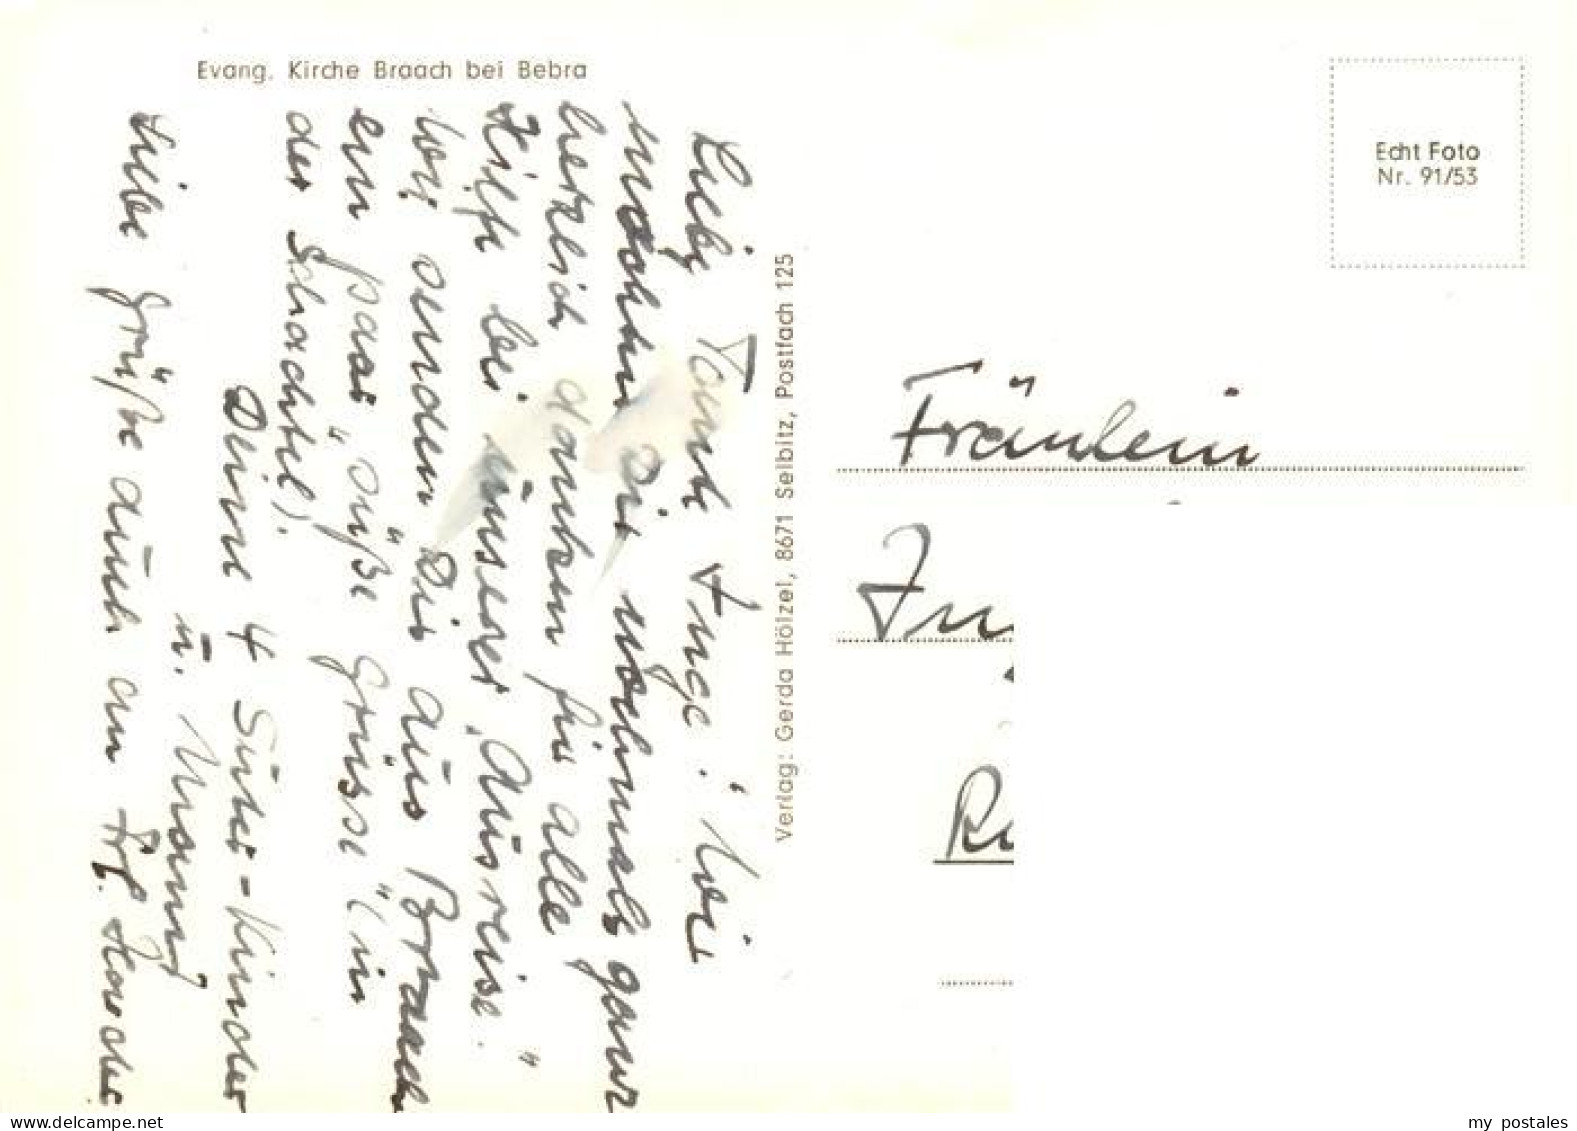 Evang. Kirche Braach bei Bebra
Liebe Tante Inge! Wir
möchten Dir nochmals ganz
herzlich danken für alle
Hilfe bei unserer „Ausreise.“
Wir senden Dir aus Braach
ein paar „süße Grüsse“ (in
der Schachtel).
Deine 4 Suter-Kinder
u. Mami
Liebe Grüße auch an Frl.
Verlag: Gerda Hölzel, 8671 Selbitz, Postfach 125
Echt Foto
Nr. 91/53
Fräulein
my postales